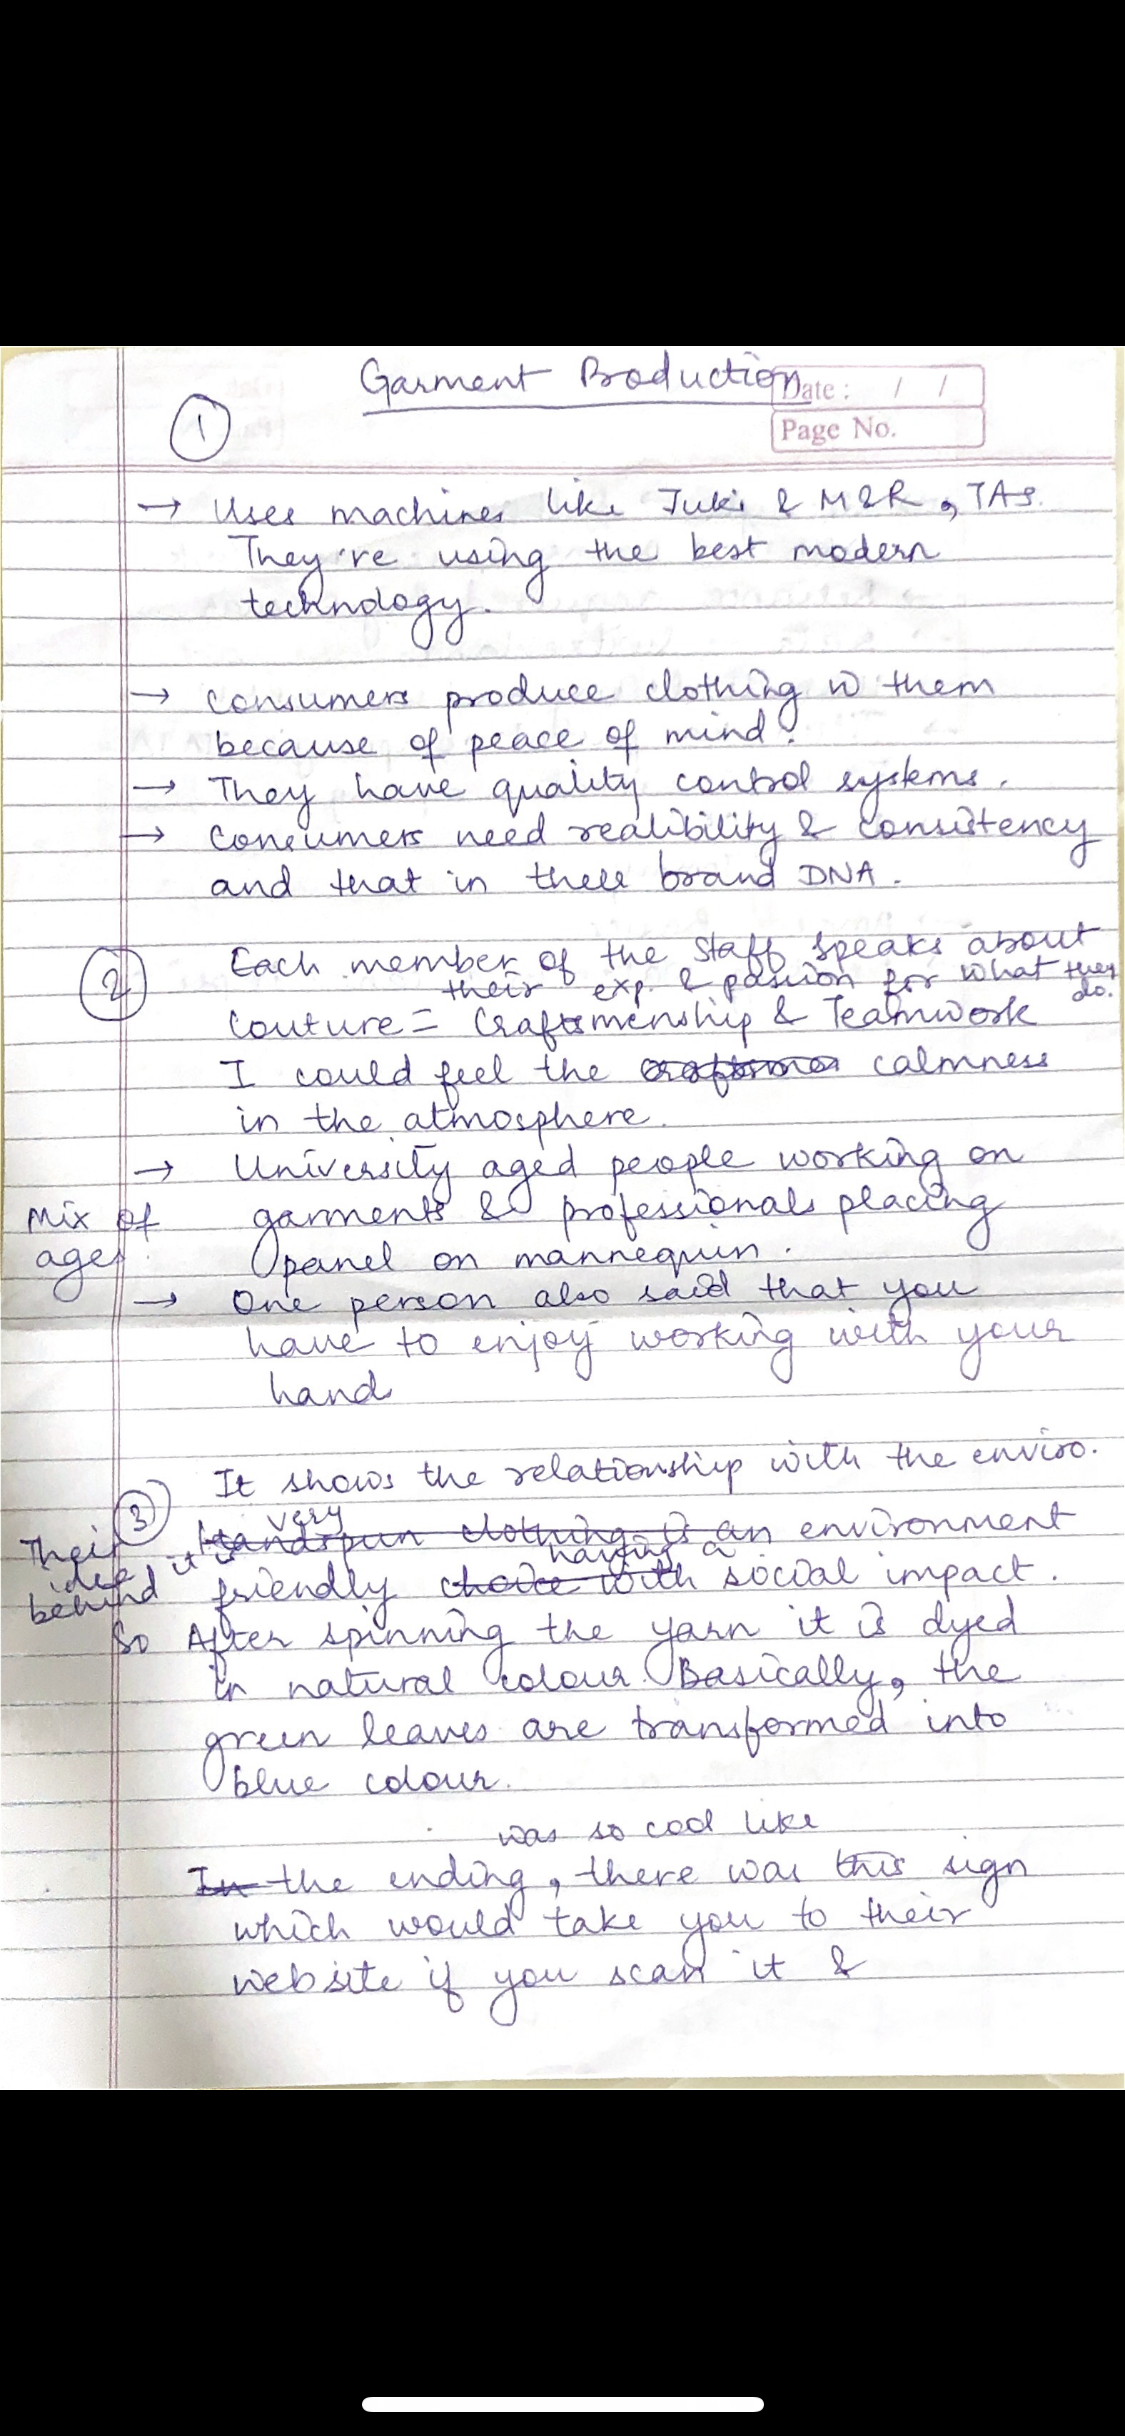 Garment Production
Date : / /
Page No.
1
→ Uses machines like Juki & M&R, TAS.
They're using the best modern
technology.
→ Consumers produce clothing w them
because of peace of mind.
→ They have quality control systems.
→ Consumers need realibility & consistency
and that in there brand DNA.
2
Each member of the Staff speaks about
their exp. & passion for what they do.
Couture = Craftsmenship & Teamwork
I could feel the calmness
in the atmosphere.
→ University aged people working on
Mix of ages
garments & professionals placing
panel on mannequin.
→ One person also said that you
have to enjoy working with your
hand
It shows the relationship with the enviro.
3
Their idea behind it is
very
Handspun clothing is an environment
having a
friendly choice with social impact.
So After spinning the yarn it is dyed
in natural colour. Basically, the
green leaves are transformed into
blue colour.
was so cool like
In the ending, there was this sign
which would take you to their
website if you scan it &